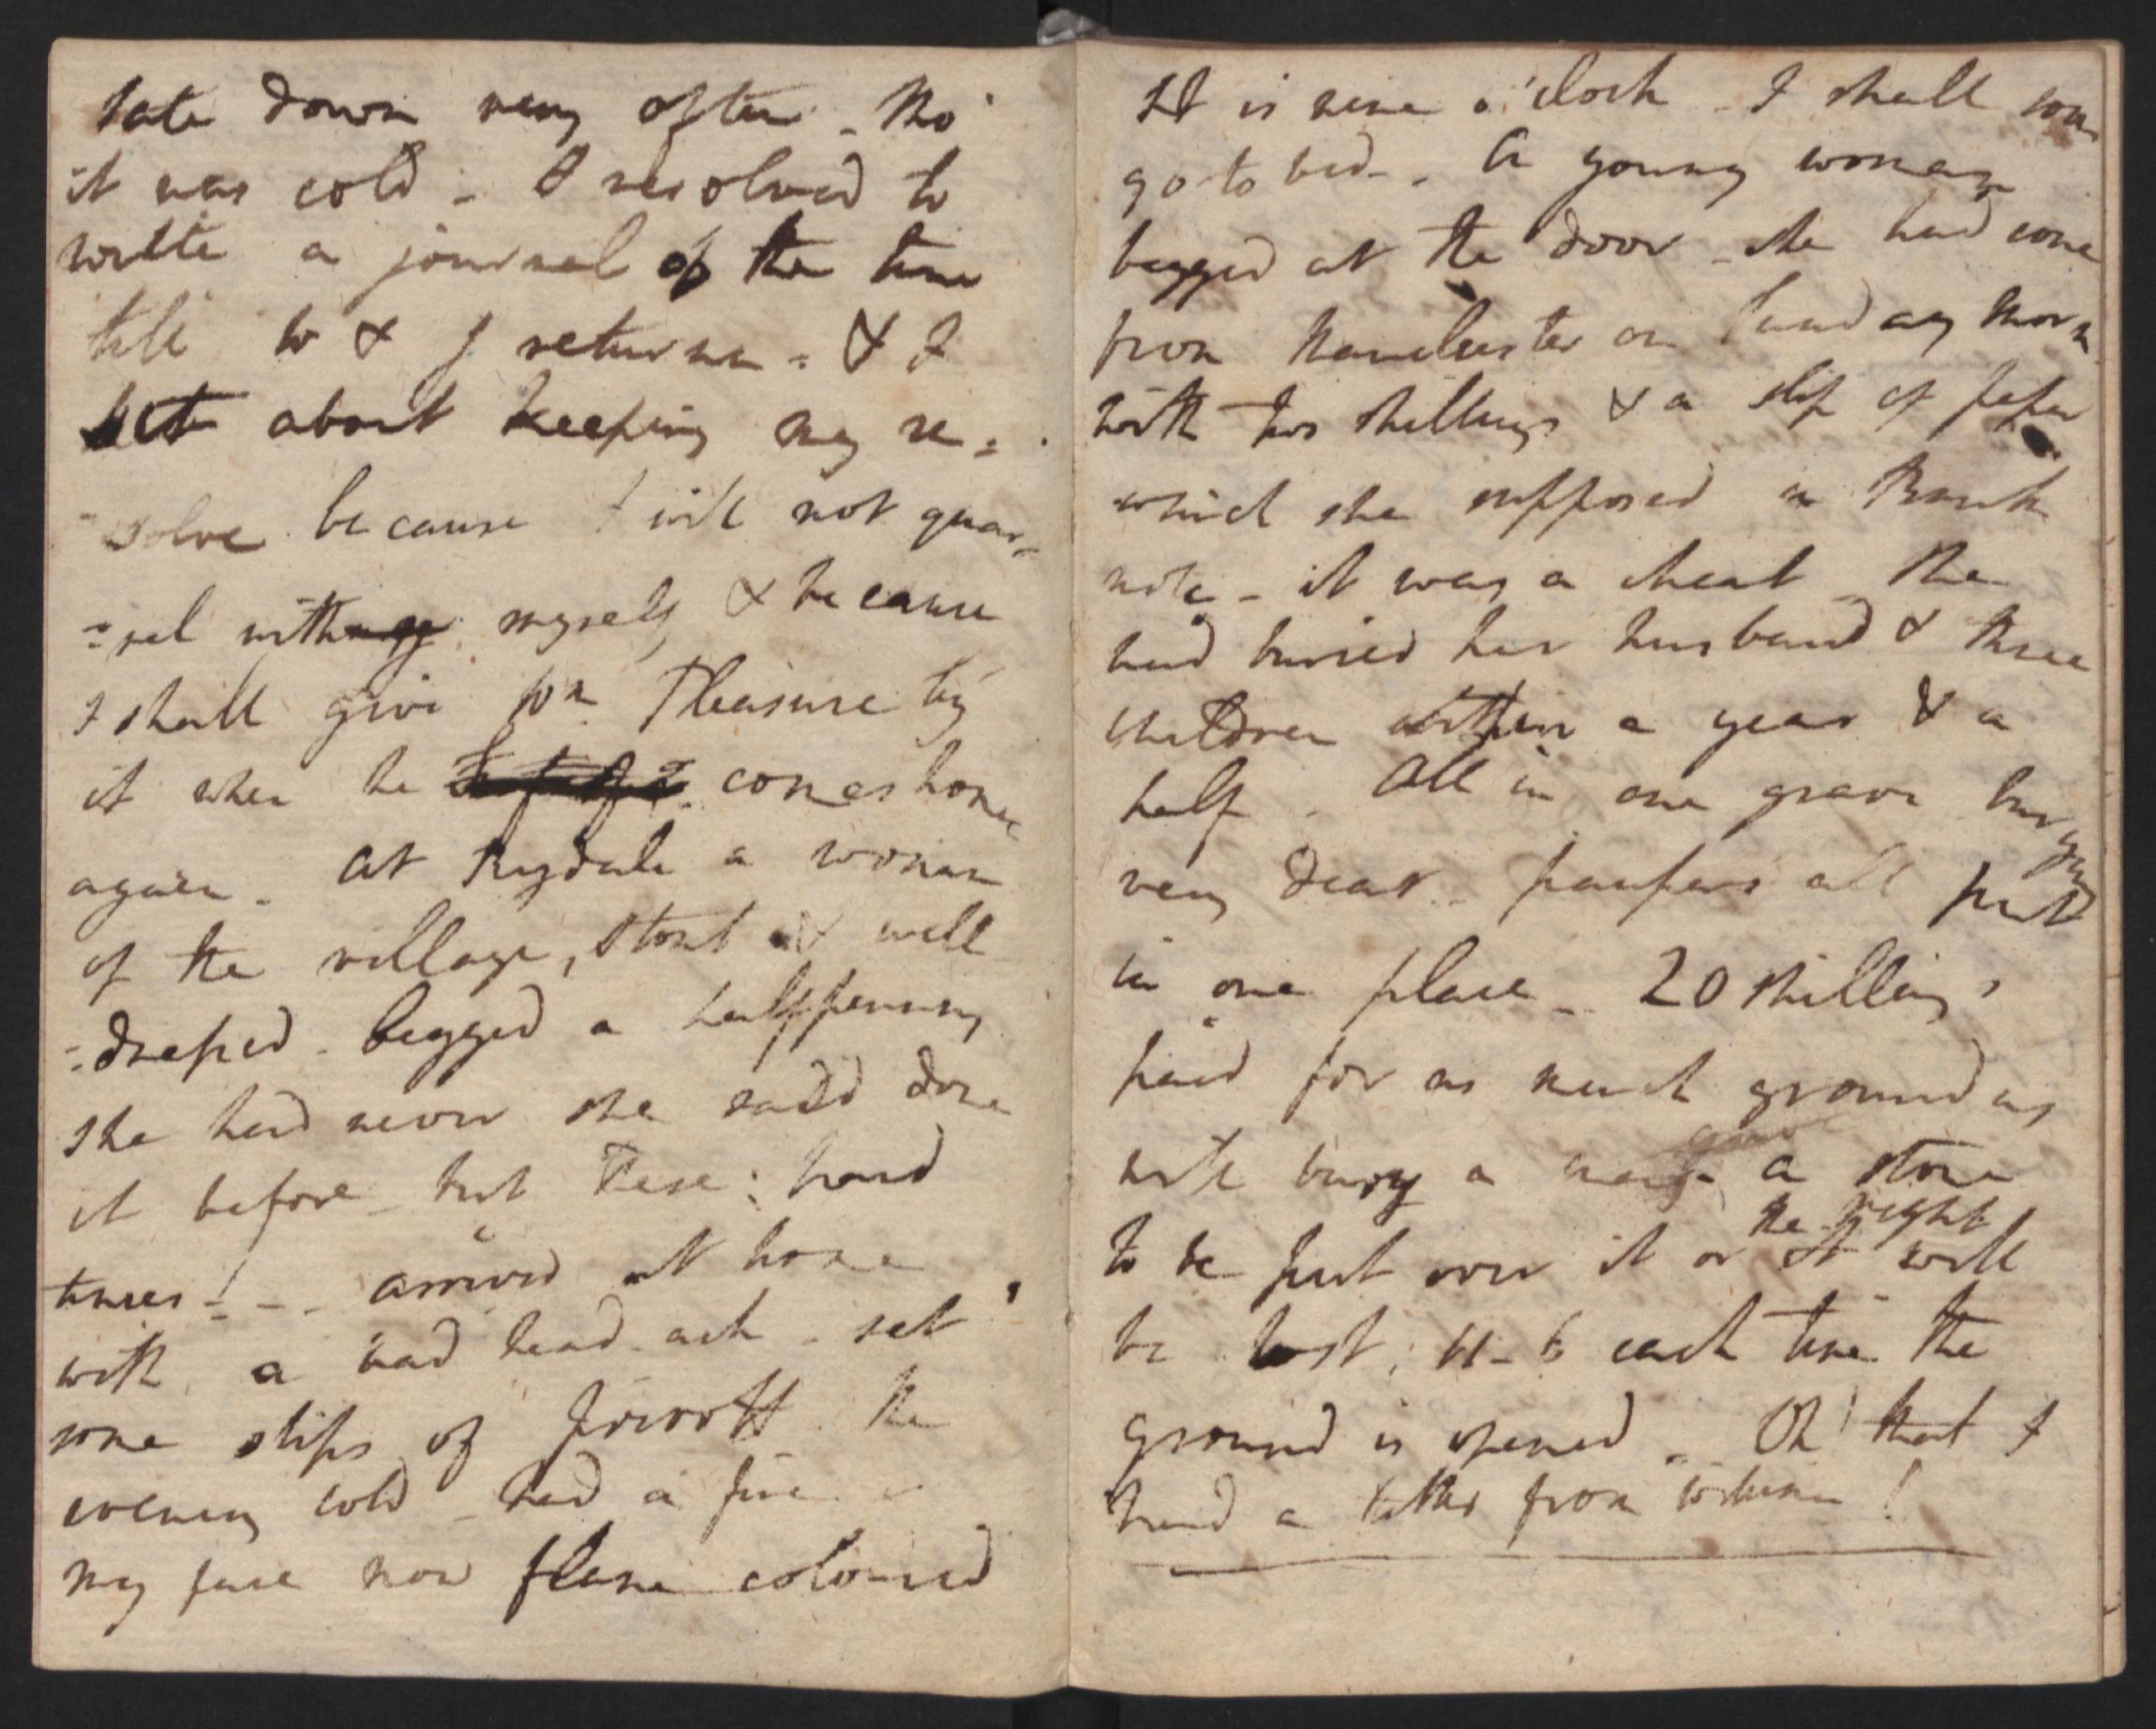 sate down very often - tho'
it was cold - I resolved to
write a journal of the time
till W & J return = & I
set about keeping my re=
-solve because I will not quar=
=rel with myself & because
I shall give Wm Pleasure by
it when he comes home
again. At Rydale a woman
of the village, stout & well
=dressed begged a halfpenny
she had never she said done
it before - but these hard
times! - - arrived at home
with a bad head-ach - set
some slips of privott the
evening cold had a fire -
my face now flame coloured
It is nine o'clock - I shall soon
go to bed - . A young woman
begged at the door - she had come
from Manchester on Sunday morn
with two shillings & a slip of paper
which she supposed a Bank
note - it was a cheat - She
had buried her husband & three
children within a year & a
half - All in one grave burying
very dear - paupers all put
in one place - 20 shillings
paid for as much ground as
will bury a man - a grave stone
to be put over it or the right will
be lost, 11-6 each time the
ground is opened - Oh! that I
had a letter from William!